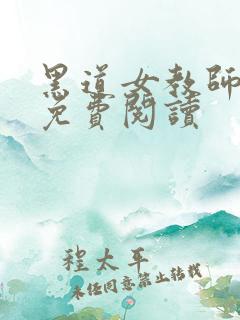 黑道女教師
免費閱讀
程太平
未经同意禁止转载